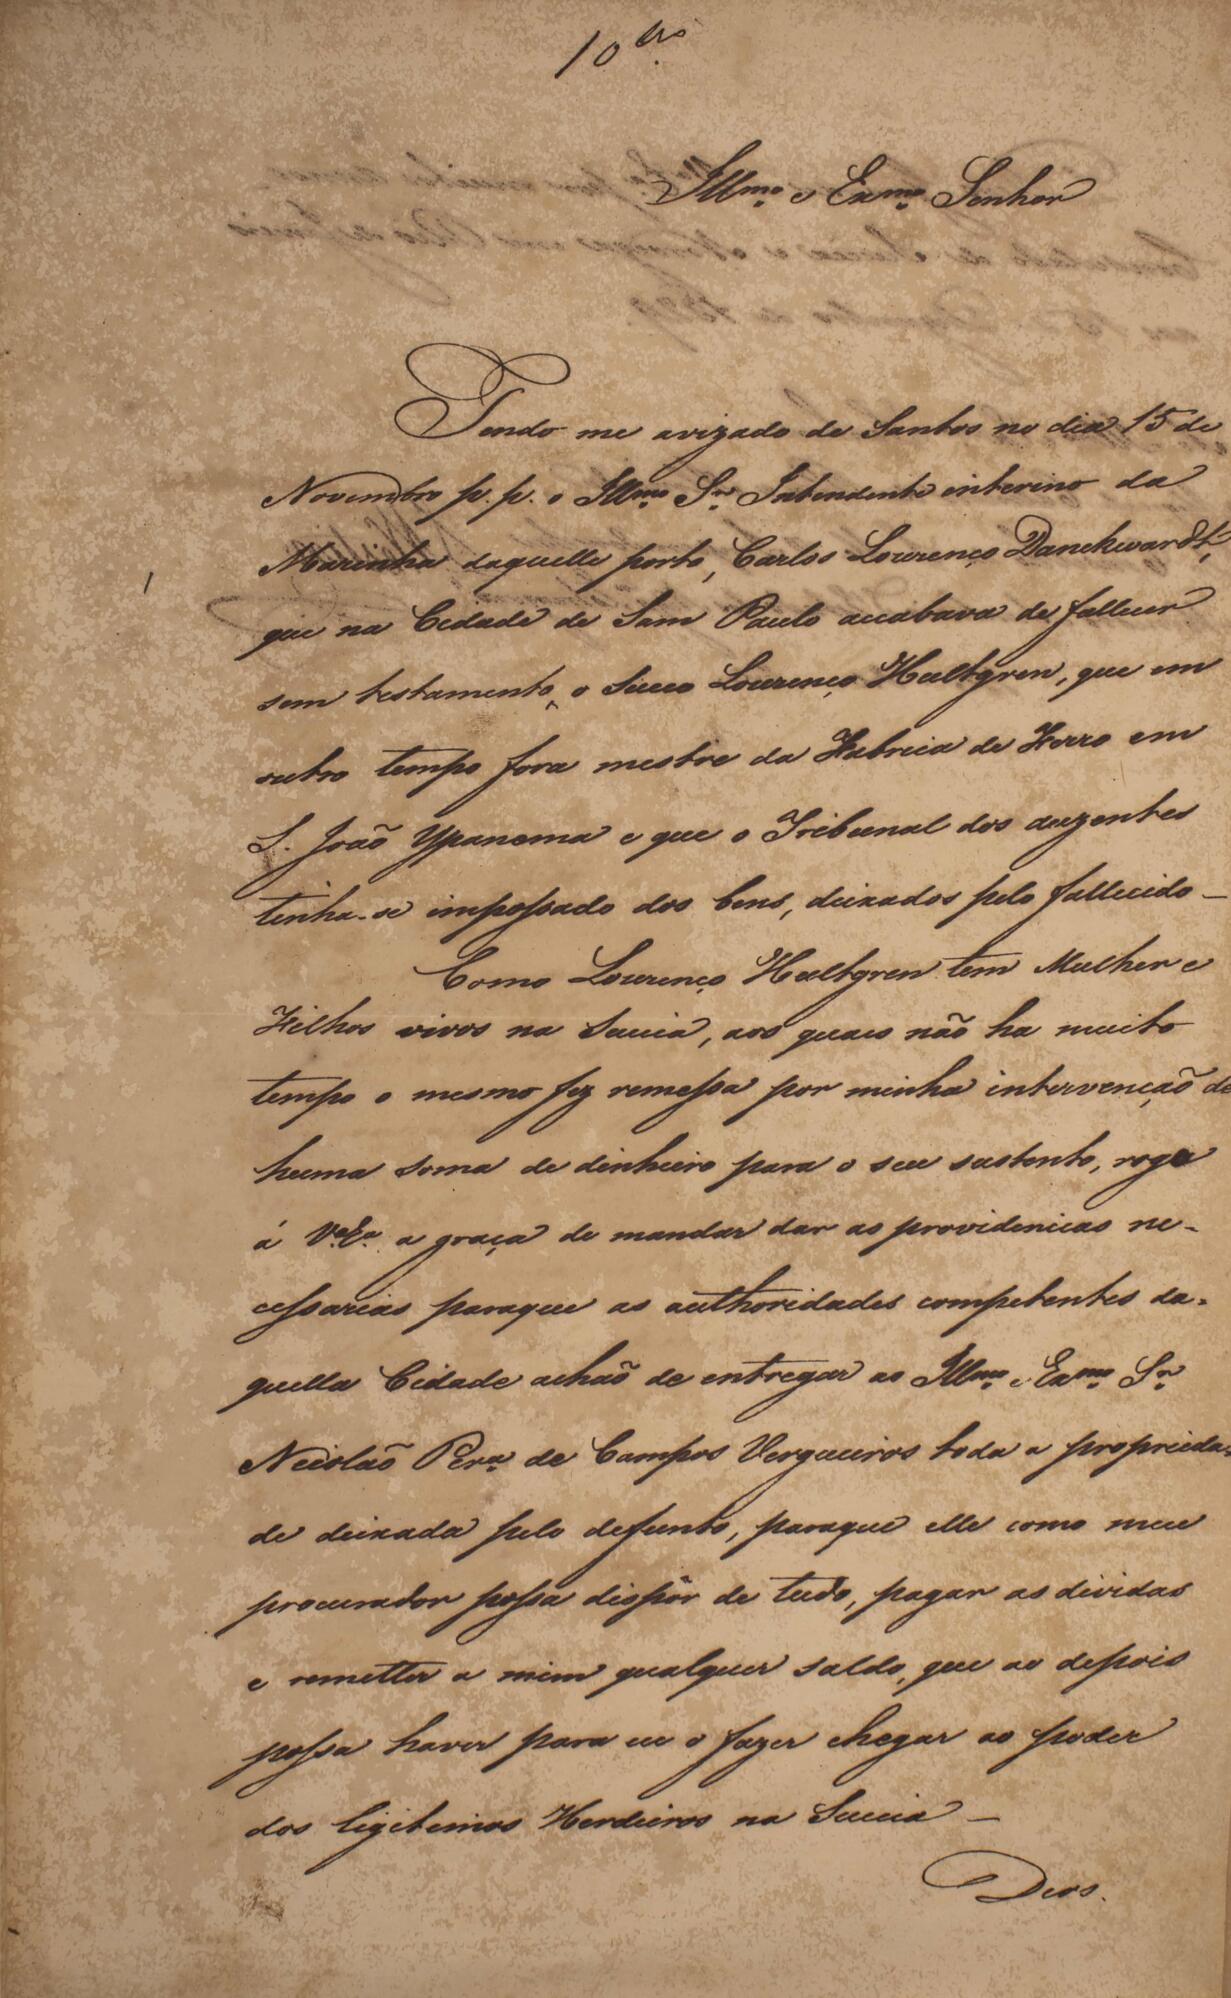 10bro
Illmo. e Exmo. Senhor
Tendo me avizado de Santos no dia 15 de
Novembro p. p. o Illmo. Sr. Intendente interino da
Marinha daquelle porto, Carlos Lourenço Danckwardt,
que na Cidade de Sam Paulo accabava de fallecer
sem testamento, o Sueco Lourenço Hultgren, que em
outro tempo fora mestre da Fabrica de Ferro em
S. João Ypanema e que o Tribunal dos auzentes
tenha-se impossado dos bens, deixados pelo fallecido —
Como Lourenço Hultgren tem Mulher e
Filhos vivos na Suecia, aos quaes não ha muito
tempo o mesmo fez remessa por minha intervenção de
huma soma de dinheiro para o seu sustento, rogo
á V.Exa. a graça de mandar dar as providenicas ne-
cessarias paraque as authoridades competentes da-
quella Cidade achão de entregar ao Illmo. e Exmo. Sr.
Nicolão Pera. de Campos Vergueiros toda a proprieda-
de deixada pelo defunto, paraque elle como meu
procurador possa dispôr de tudo, pagar as dividas
e remetter a mim qualquer saldo, que ao depois
possa haver para eu o fazer chegar ao poder
dos ligitimos Herdeiros na Suecia —
Deos.